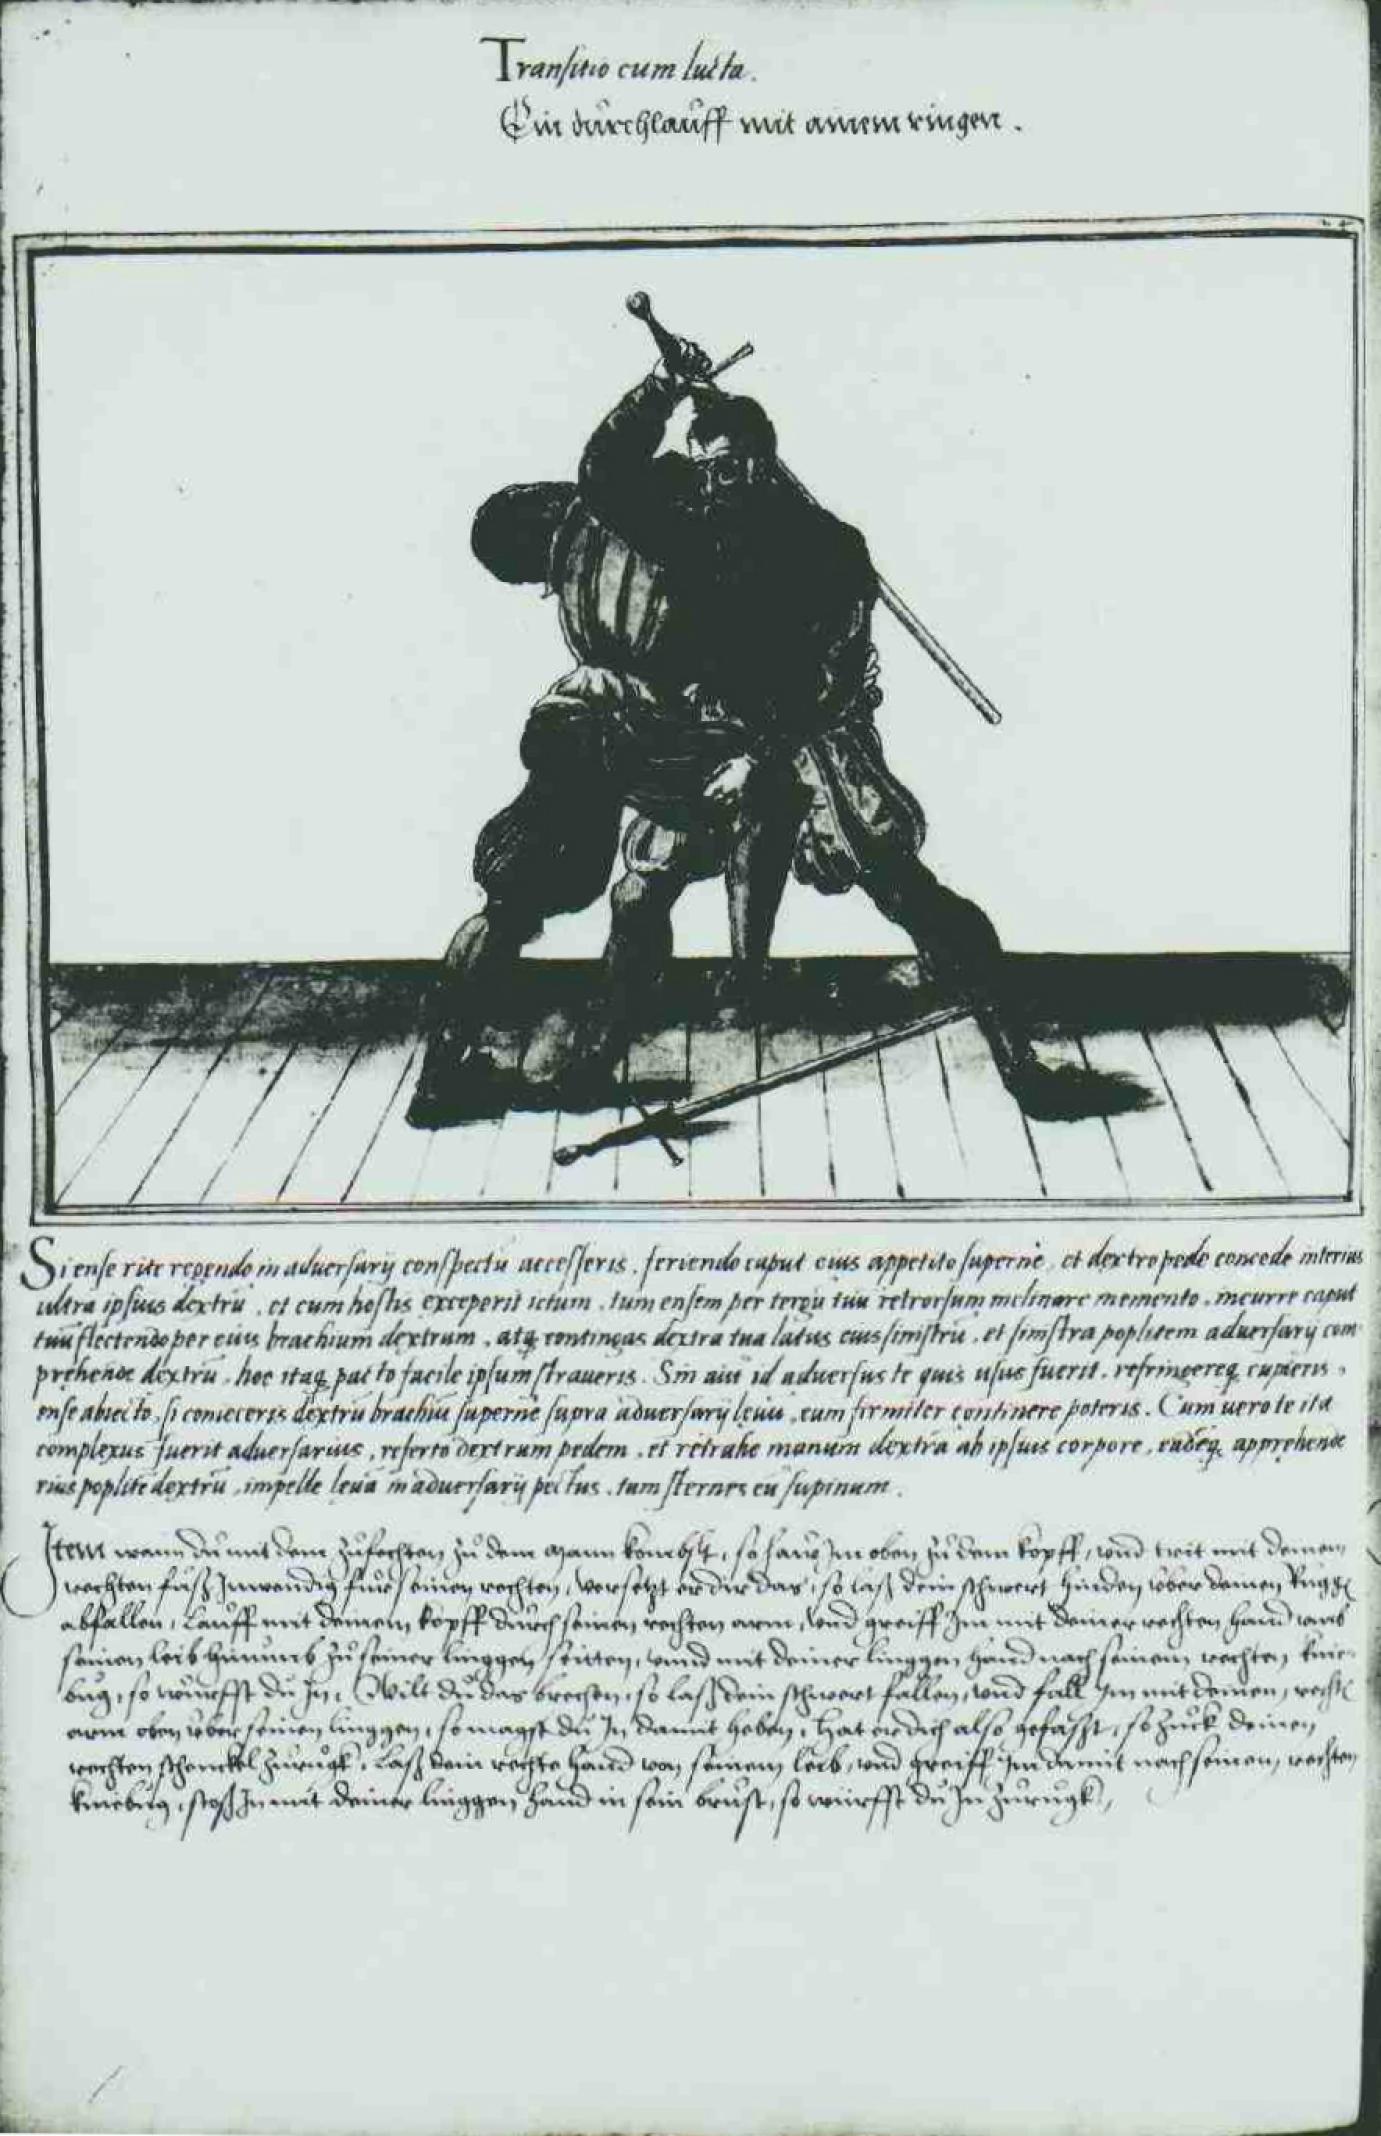 Transitio cum lucta.
Ein durchlauff mit ainem ringen.
Si ense rite regendo in adversarij conspectũ accesseris, feriendo caput eius appetito supernè, et dextro pede concede interius
ultra ipsius dextrũ, et cum hostis exceperit ictum, tum ensem per tergũ tuũ retrorsum inclinare memento, incurre caput
tuũ flectendo per eius brachium dextrum, atq; contingas dextra tua latus eius sinistrũ, et sinistra poplitem adversarij com
prehende dextrũ, hoc itaq; pacto facile ipsum straueris. Sin aũt id adversus te quis usus fuerit, refringereq; cupieris,
ense abiecto, si conieceris dextrũ brachiũ supernè supra adversarij leuũ, eum firmiter continere poteris. Cum uero te ita
complexus fuerit adversarius, referto dextrum pedem, et retrahe manum dextrã ab ipsius corpore, eadẽq; apprehende
eius poplitẽ dextrũ, impelle leuã in adversarij pectus, tum sternes eũ supinum.
Item wann du mit dem zufechten zu dem mann kombst, so haw Im oben zu dem kopff, vnd trit mit deinem
rechten fuß Inwendig fur seinen rechten, versetzt er dir das, so laß dein schwert hinden vber deinen Rugg
abfallen, lauff mit deinem kopff durch seinen rechten arm, vnd greiff Im mit deiner rechten hand vmb
seinen leib hinumb zu seiner linggen seitten, vnnd mit deiner linggen hand nach seinem rechten knie
bug, so wurffst du In, Wilt du das brechen, so laß dein schwert fallen, vnd fall Im mit deinem, recht
arm oben vber seinen linggen, so magst du In damit heben, hat er dich also gefasst, so zuck deinen
rechten schenckel zurugk, laß dein rechte hand von seinem leib, vnd greiff Im damit nach seinem, rechten
kniebug, stoß In mit deiner linggen hand in sein brust, so würffst du In zurugk,